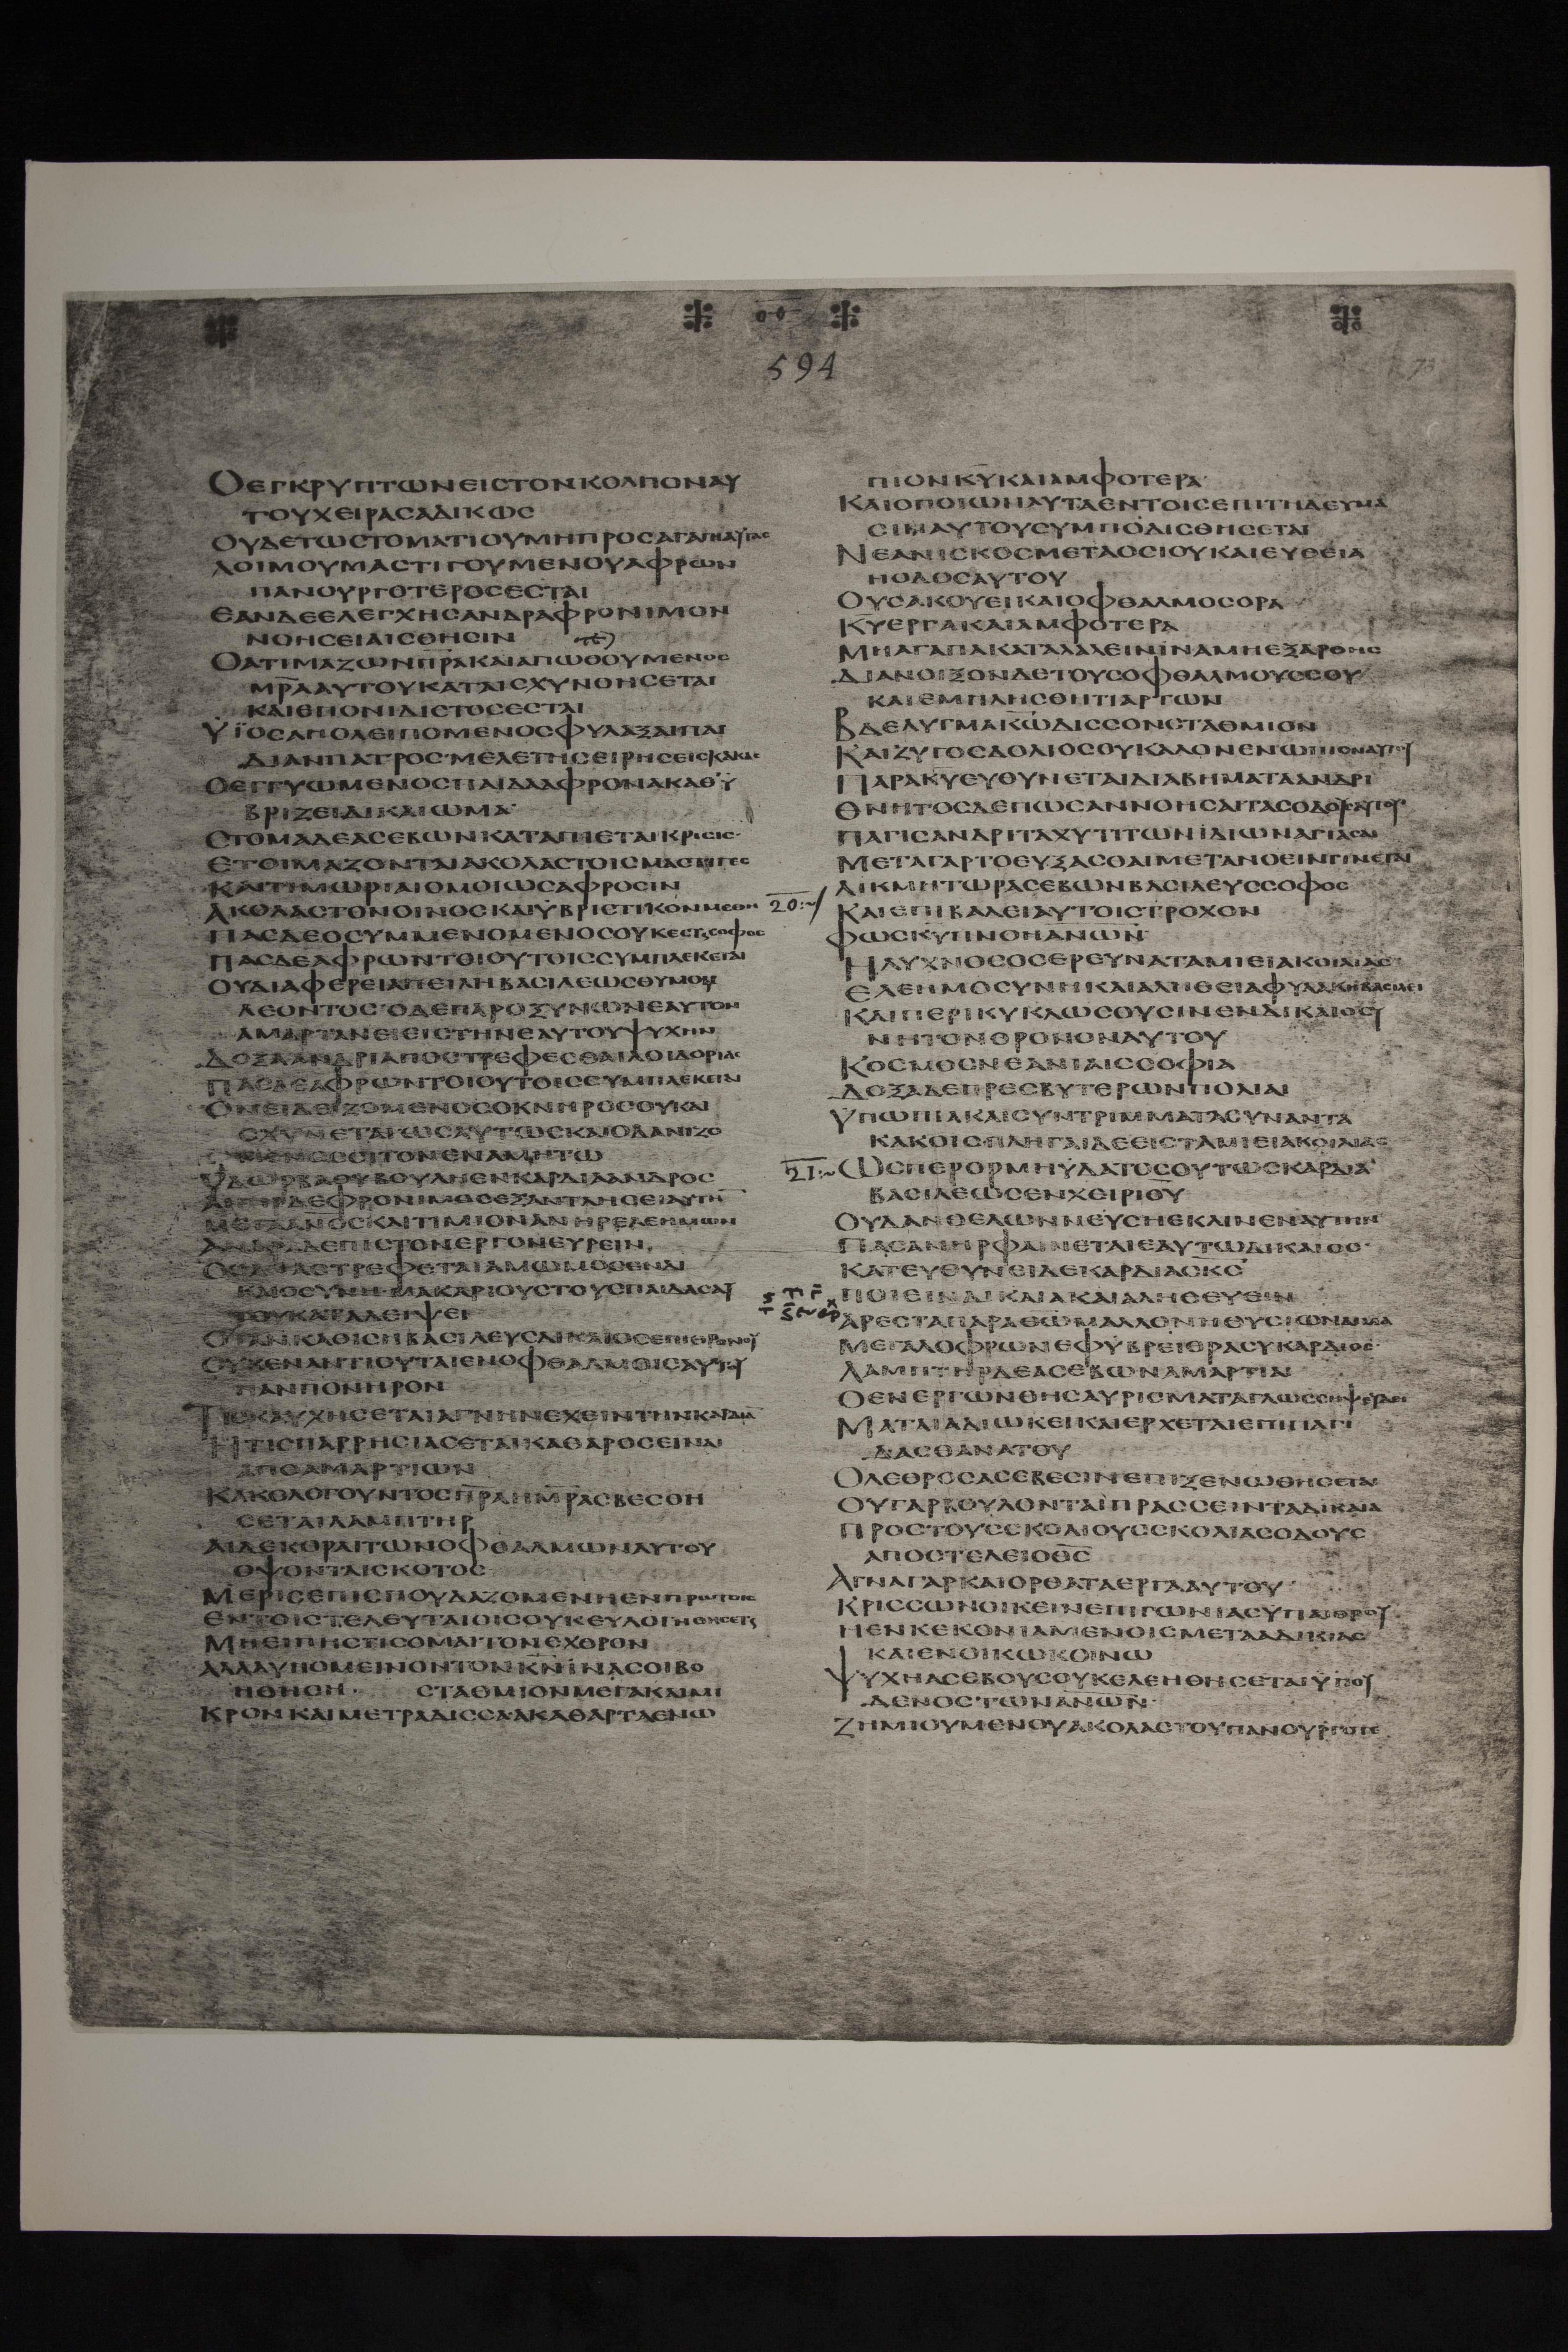 594
ΟΕΓΚΡΥΠΤΩΝΕΙΣΤΟΝΚΟΛΠΟΝΑΥ
ΤΟΥΧΕΙΡΑΣΑΔΙΚΩΣ
ΟΥΔΕΤΩΣΤΟΜΑΤΙΟΥΜΗΠΡΟΣΑΓΑΓΗΑΥΤΑΣ
ΛΟΙΜΟΥΜΑΣΤΙΓΟΥΜΕΝΟΥΑΦΡΩΝ
ΠΑΝΟΥΡΓΟΤΕΡΟΣΕΣΤΑΙ
ΕΑΝΔΕΕΛΕΓΧΗΣΑΝΔΡΑΦΡΟΝΙΜΟΝ
ΝΟΗΣΕΙΑΙΣΘΗΣΙΝ
ΟΑΤΙΜΑΖΩΝΠΡΑΚΑΙΑΠΩΘΟΥΜΕΝΟΣ
ΜΡΑΑΥΤΟΥΚΑΤΑΙΣΧΥΝΘΗΣΕΤΑΙ
ΚΑΙΕΠΟΝΙΔΙΣΤΟΣΕΣΤΑΙ
ΥΪΟΣΑΠΟΛΕΙΠΟΜΕΝΟΣΦΥΛΑΞΑΙΠΑΙ
ΔΙΑΝΠΑΤΡΟΣ·ΜΕΛΕΤΗΣΕΙΡΗΣΕΙΣΚΑΚΑΣ
ΟΕΓΓΥΩΜΕΝΟΣΠΑΙΔΑΑΦΡΟΝΑΚΑΘΥ
ΒΡΙΖΕΙΔΙΚΑΙΩΜΑ·
ΣΤΟΜΑΔΕΑΣΕΒΩΝΚΑΤΑΠΙΕΤΑΙΚΡΙΣΙΣ·
ΕΤΟΙΜΑΖΟΝΤΑΙΑΚΟΛΑΣΤΟΙΣΜΑΣΤΙΓΕΣ
ΚΑΙΤΙΜΩΡΙΑΙΟΜΟΙΩΣΑΦΡΟΣΙΝ
ΑΚΟΛΑΣΤΟΝΟΙΝΟΣΚΑΙΥΒΡΙΣΤΙΚΟΝΜΕΘΗ
ΠΑΣΔΕΟΣΥΜΜΕΝΟΜΕΝΟΣΟΥΚΕΣΤϛΣΟΦΟΣ
ΠΑΣΔΕΑΦΡΩΝΤΟΙΟΥΤΟΙΣΣΥΜΠΛΕΚΕΤΑΙ
ΟΥΔΙΑΦΕΡΕΙΑΠΕΙΛΗΒΑΣΙΛΕΩΣΘΥΜΟΥ
ΛΕΟΝΤΟΣ·ΟΔΕΠΑΡΟΞΥΝΩΝΕΑΥΤΟΝ
ΑΜΑΡΤΑΝΕΙΕΙΣΤΗΝΕΑΥΤΟΥΨΥΧΗΝ
ΔΟΞΑΑΝΔΡΙΑΠΟΣΤΡΕΦΕΣΘΑΙΛΟΙΔΟΡΙΑΣ
ΠΑΣΔΕΑΦΡΩΝΤΟΙΟΥΤΟΙΣΣΥΜΠΛΕΚΕΤΑΙ
ΟΝΕΙΔΙΖΟΜΕΝΟΣΟΚΝΗΡΟΣΟΥΚΑΙ
ΣΧΥΝΕΤΑΙΩΣΑΥΤΩΣΚΑΙΟΔΑΝΙΖΟ
ΜΕΝΟΣΣΙΤΟΝΕΝΑΜΗΤΩ
ΥΔΩΡΒΑΘΥΒΟΥΛΗΕΝΚΑΡΔΙΑΑΝΔΡΟΣ
ΑΝΗΡΔΕΦΡΟΝΙΜΟΣΕΞΑΝΤΛΗΣΕΙΑΥΤΗ
ΜΕΓΑΑΝΟΣΚΑΙΤΙΜΙΟΝΑΝΗΡΕΛΕΗΜΩΝ
ΑΝΔΡΑΔΕΠΙΣΤΟΝΕΡΓΟΝΕΥΡΕΙΝ
ΟΣΑΝΑΣΤΡΕΦΕΤΑΙΑΜΩΜΟΣΕΝΔΙ
ΚΑΙΟΣΥΝΗ·ΜΑΚΑΡΙΟΥΣΤΟΥΣΠΑΙΔΑΣΑΥ
ΤΟΥΚΑΤΑΛΕΙΨΕΙ
ΟΤΑΝΚΑΘΙΣΗΒΑΣΙΛΕΥΣΔΙΚΑΙΟΣΕΠΙΘΡΟΝΟΥ
ΟΥΚΕΝΑΝΤΙΟΥΤΑΙΕΝΟΦΘΑΛΜΟΙΣΑΥΤΟΥ
ΠΑΝΠΟΝΗΡΟΝ
ΤΙΣΚΑΥΧΗΣΕΤΑΙΑΓΝΗΝΕΧΕΙΝΤΗΝΚΑΡΔΙΑ
ΗΤΙΣΠΑΡΡΗΣΙΑΣΕΤΑΙΚΑΘΑΡΟΣΕΙΝΑΙ
ΑΠΟΑΜΑΡΤΙΩΝ
ΚΑΚΟΛΟΓΟΥΝΤΟΣΠΡΑΗΜΡΑΣΒΕΣΘΗ
ΣΕΤΑΙΛΑΜΠΤΗΡ
ΑΙΔΕΚΟΡΑΙΤΩΝΟΦΘΑΛΜΩΝΑΥΤΟΥ
ΟΨΟΝΤΑΙΣΚΟΤΟΣ
ΜΕΡΙΣΕΠΙΣΠΟΥΔΑΖΟΜΕΝΗΕΝΠΡΩΤΟΙΣ
ΕΝΤΟΙΣΤΕΛΕΥΤΑΙΟΙΣΟΥΚΕΥΛΟΓΗΘΗΣΕΤϛ
ΜΗΕΙΠΗΣΤΙΣΟΜΑΙΤΟΝΕΧΘΡΟΝ
ΑΛΛΑΥΠΟΜΕΙΝΟΝΤΟΝΚΝΙΝΑΣΟΙΒΟ
ΗΘΗΣΗ· ΣΤΑΘΜΙΟΝΜΕΓΑΚΑΙΜΙ
ΚΡΟΝΚΑΙΜΕΤΡΑΔΙΣΣΑΑΚΑΘΑΡΤΑΕΝΩ
ΠΙΟΝΚΥΚΑΙΑΜΦΟΤΕΡΑ·
ΚΑΙΟΠΟΙΩΝΑΥΤΑΕΝΤΟΙΣΕΠΙΤΗΔΕΥΜΑ
ΣΙΝΑΥΤΟΥΣΥΜΠΟΔΙΣΘΗΣΕΤΑΙ
ΝΕΑΝΙΣΚΟΣΜΕΤΑΟΣΙΟΥΚΑΙΕΥΘΕΙΑ
ΗΟΔΟΣΑΥΤΟΥ
ΟΥΣΑΚΟΥΕΙΚΑΙΟΦΘΑΛΜΟΣΟΡΑ
ΚΥΕΡΓΑΚΑΙΑΜΦΟΤΕΡΑ
ΜΗΑΓΑΠΑΚΑΤΑΛΑΛΕΙΝΙΝΑΜΗΕΞΑΡΘΗΣ
ΔΙΑΝΟΙΞΟΝΔΕΤΟΥΣΟΦΘΑΛΜΟΥΣΣΟΥ
ΚΑΙΕΜΠΛΗΣΘΗΤΙΑΡΤΩΝ
ΒΔΕΛΥΓΜΑΚΩΔΙΣΣΟΝΣΤΑΘΜΙΟΝ
ΚΑΙΖΥΓΟΣΔΟΛΙΟΣΟΥΚΑΛΟΝΕΝΩΠΙΟΝΑΥΤΟΥ
ΠΑΡΑΚΥΕΥΘΥΝΕΤΑΙΔΙΑΒΗΜΑΤΑΑΝΔΡΙ
ΘΝΗΤΟΣΔΕΠΩΣΑΝΝΟΗΣΑΙΤΑΣΟΔΟΥΣΑΥΤΟΥ·
ΠΑΓΙΣΑΝΔΡΙΤΑΧΥΤΙΤΩΝΙΔΙΩΝΑΓΙΑΣΑΙ
ΜΕΤΑΓΑΡΤΟΕΥΞΑΣΘΑΙΜΕΤΑΝΟΕΙΝΓΙΝΕΤΑΙ
ΛΙΚΜΗΤΩΡΑΣΕΒΩΝΒΑΣΙΛΕΥΣΣΟΦΟΣ
20:~/ ΚΑΙΕΠΙΒΑΛΕΙΑΥΤΟΙΣΤΡΟΧΟΝ
ΦΩΣΚΥΠΝΟΗΑΝΩΝ·
ΗΛΥΧΝΟΣΟΣΕΡΕΥΝΑΤΑΜΙΕΙΑΚΟΙΛΙΑΣ·
ΕΛΕΗΜΟΣΥΝΗΚΑΙΑΛΗΘΕΙΑΦΥΛΑΚΗΒΑΣΙΛΕΙ
ΚΑΙΠΕΡΙΚΥΚΛΩΣΟΥΣΙΝΕΝΔΙΚΑΙΟΣΥ
ΝΗΤΟΝΘΡΟΝΟΝΑΥΤΟΥ
ΚΟΣΜΟΣΝΕΑΝΙΑΙΣΣΟΦΙΑ
ΔΟΞΑΔΕΠΡΕΣΒΥΤΕΡΩΝΠΟΛΙΑΙ
ΥΠΩΠΙΑΚΑΙΣΥΝΤΡΙΜΜΑΤΑΣΥΝΑΝΤΑ
ΚΑΚΟΙΣ·ΠΛΗΓΑΙΔΕΕΙΣΤΑΜΙΕΙΑΚΟΙΛΙΑΣ
21:~ ΩΣΠΕΡΟΡΜΗΥΔΑΤΟΣΟΥΤΩΣΚΑΡΔΙΑ
ΒΑΣΙΛΕΩΣΕΝΧΕΙΡΙΘΥ
ΟΥΔΑΝΘΕΛΩΝΝΕΥΣΗΕΚΛΙΝΕΝΑΥΤΗΝ
ΠΑΣΑΝΗΡΦΑΙΝΕΤΑΙΕΑΥΤΩΔΙΚΑΙΟΣ·
ΚΑΤΕΥΘΥΝΕΙΔΕΚΑΡΔΙΑΣΚΣ
ΠΟΙΕΙΝΔΙΚΑΙΑΚΑΙΑΛΗΘΕΥΕΙΝ
ΑΡΕΣΤΑΠΑΡΑΘΩΜΑΛΛΟΝΗΘΥΣΙΩΝΑΙΜΑ
ΜΕΓΑΛΟΦΡΩΝΕΦΥΒΡΕΙΘΡΑΣΥΚΑΡΔΙΟΣ·
ΛΑΜΠΤΗΡΔΕΑΣΕΒΩΝΑΜΑΡΤΙΑ
ΟΕΝΕΡΓΩΝΘΗΣΑΥΡΙΣΜΑΤΑΓΛΩΣΣΗΨΕΥΔΕΙ
ΜΑΤΑΙΑΔΙΩΚΕΙΚΑΙΕΡΧΕΤΑΙΕΠΙΠΑΓΙ
ΔΑΣΘΑΝΑΤΟΥ
ΟΛΕΘΡΟΣΑΣΕΒΕΣΙΝΕΠΙΞΕΝΩΘΗΣΕΤΑΙ
ΟΥΓΑΡΒΟΥΛΟΝΤΑΙΠΡΑΣΣΕΙΝΤΑΔΙΚΑΙΑ
ΠΡΟΣΤΟΥΣΣΚΟΛΙΟΥΣΣΚΟΛΙΑΣΟΔΟΥΣ
ΑΠΟΣΤΕΛΕΙΟΘΣ
ΑΓΝΑΓΑΡΚΑΙΟΡΘΑΤΑΕΡΓΑΑΥΤΟΥ·
ΚΡΙΣΣΩΝΟΙΚΕΙΝΕΠΙΓΩΝΙΑΣΥΠΑΙΘΡΟΥ
ΗΕΝΚΕΚΟΝΙΑΜΕΝΟΙΣΜΕΤΑΑΔΙΚΙΑΣ
ΚΑΙΕΝΟΙΚΩΚΟΙΝΩ
ΨΥΧΗΑΣΕΒΟΥΣΟΥΚΕΛΕΗΘΗΣΕΤΑΙΥΠΟΥ
ΔΕΝΟΣΤΩΝΑΝΩΝ·
ΖΗΜΙΟΥΜΕΝΟΥΑΚΟΛΑΣΤΟΥΠΑΝΟΥΡΓΟΤΕ